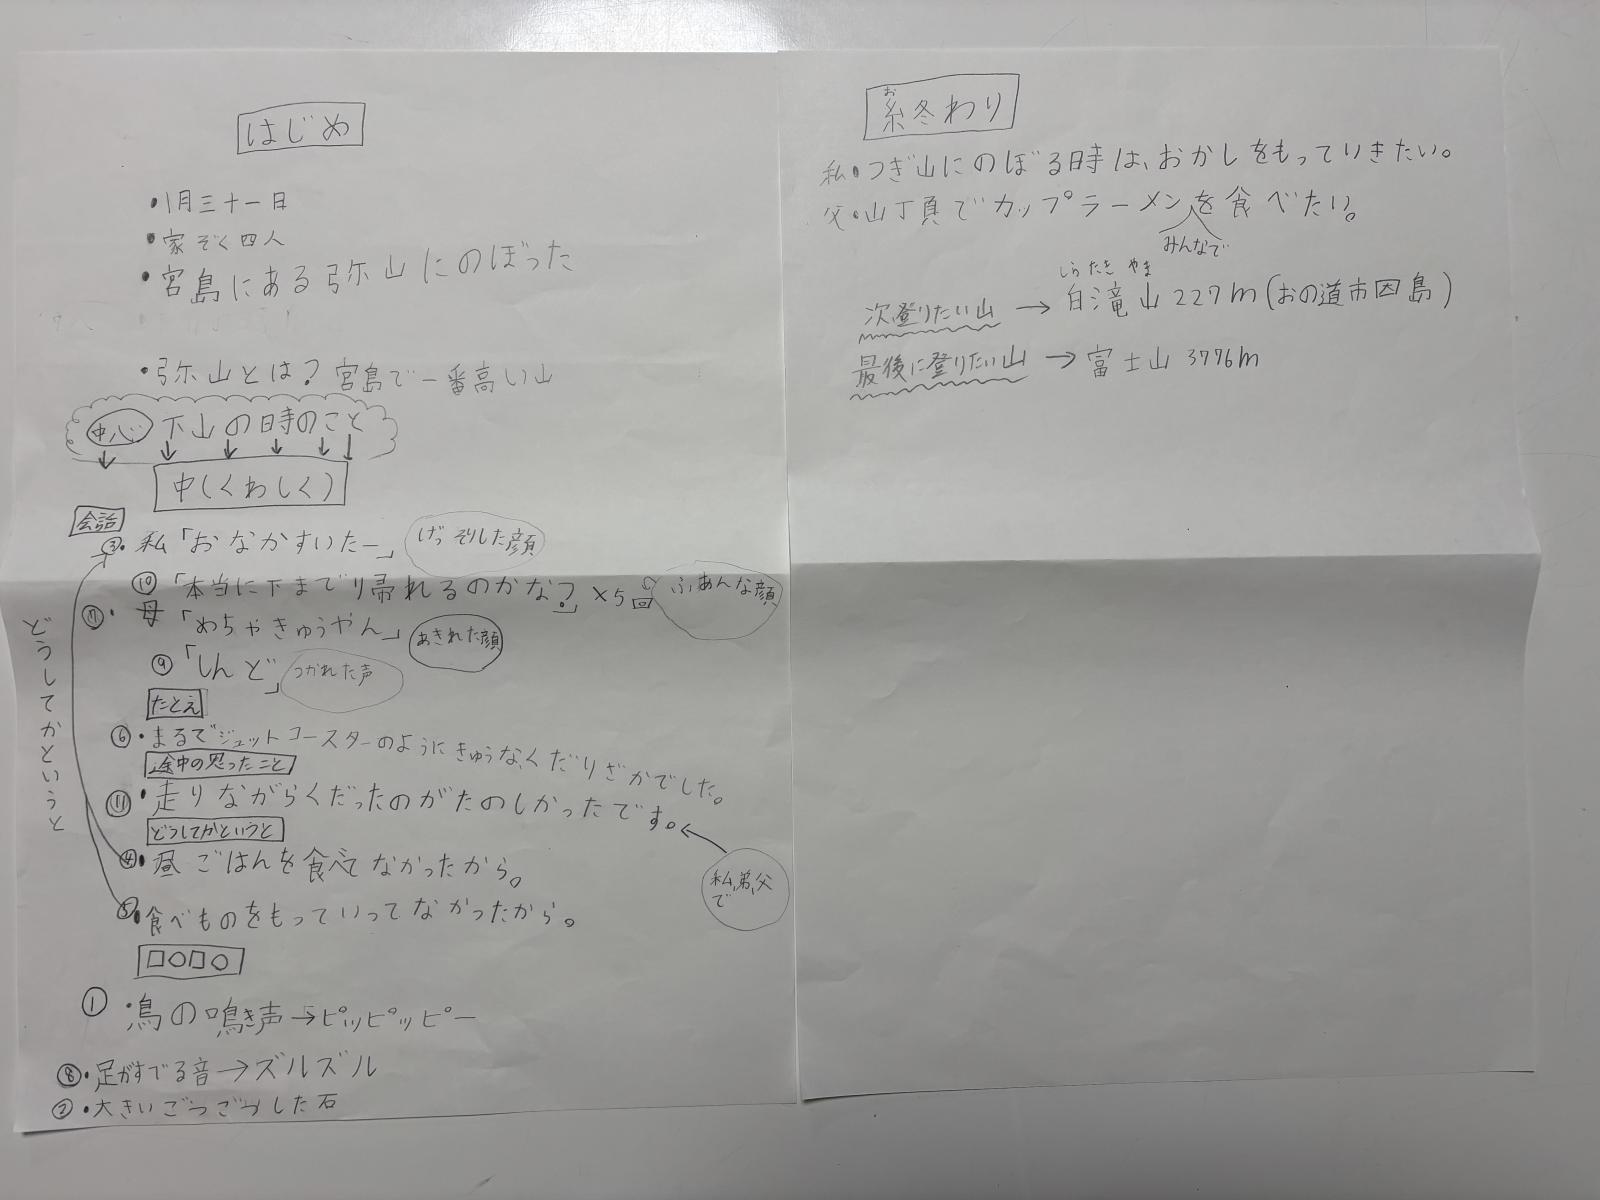 はじめ
・1月三十一日
・家ぞく四人
・宮島にある弥山にのぼった
・弥山とは?宮島で一番高い山
中心 下山の時のこと
中(くわしく)
会話
③・私「おなかすいたー」 げっそりした顔
⑩「本当に下までり帰れるのかな?」×5回 ふあんな顔
⑦・母「めちゃきゅうやん」 あきれた顔
⑨「しんど」 つかれた声
たとえ
⑥・まるでジェットコースターのようにきゅうな、くだりざかでした。
途中の思ったこと
⑪・走りながらくだったのがたのしかったです。
どうしてかというと
④・昼ごはんを食べてなかったから。
私、弟、父で
⑤・食べものをもっていってなかったから。
どうしてかというと
□○□○
①・鳥の鳴き声→ピッピッピー
⑧・足がすでる音→ズルズル
②・大きいごつごつした石
お
終わり
私・つぎ山にのぼる時は、おかしをもっていきたい。
父・山丁頁でカップラーメンを食べたい。
みんなで
しらたきやま
次、登りたい山→白滝山227m(おの道市因島)
最後に登りたい山→富士山3776m